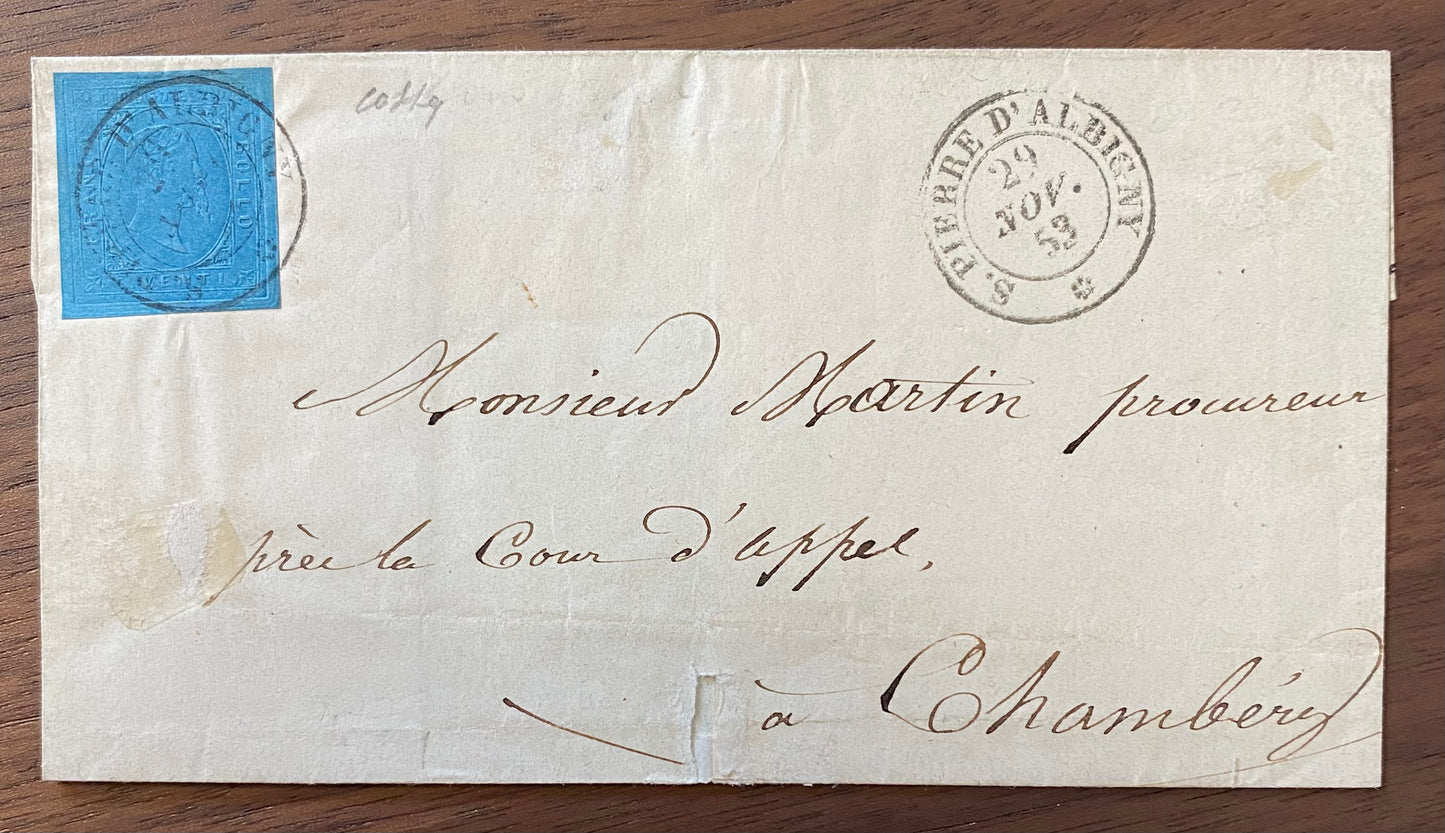 FRANCO BOLLO
C. VENTI 20
S. PIERRE D'ALBIGNY
29
NOV.
53
Monsieur Martin procureur
près la Cour d'appel,
à Chambéry